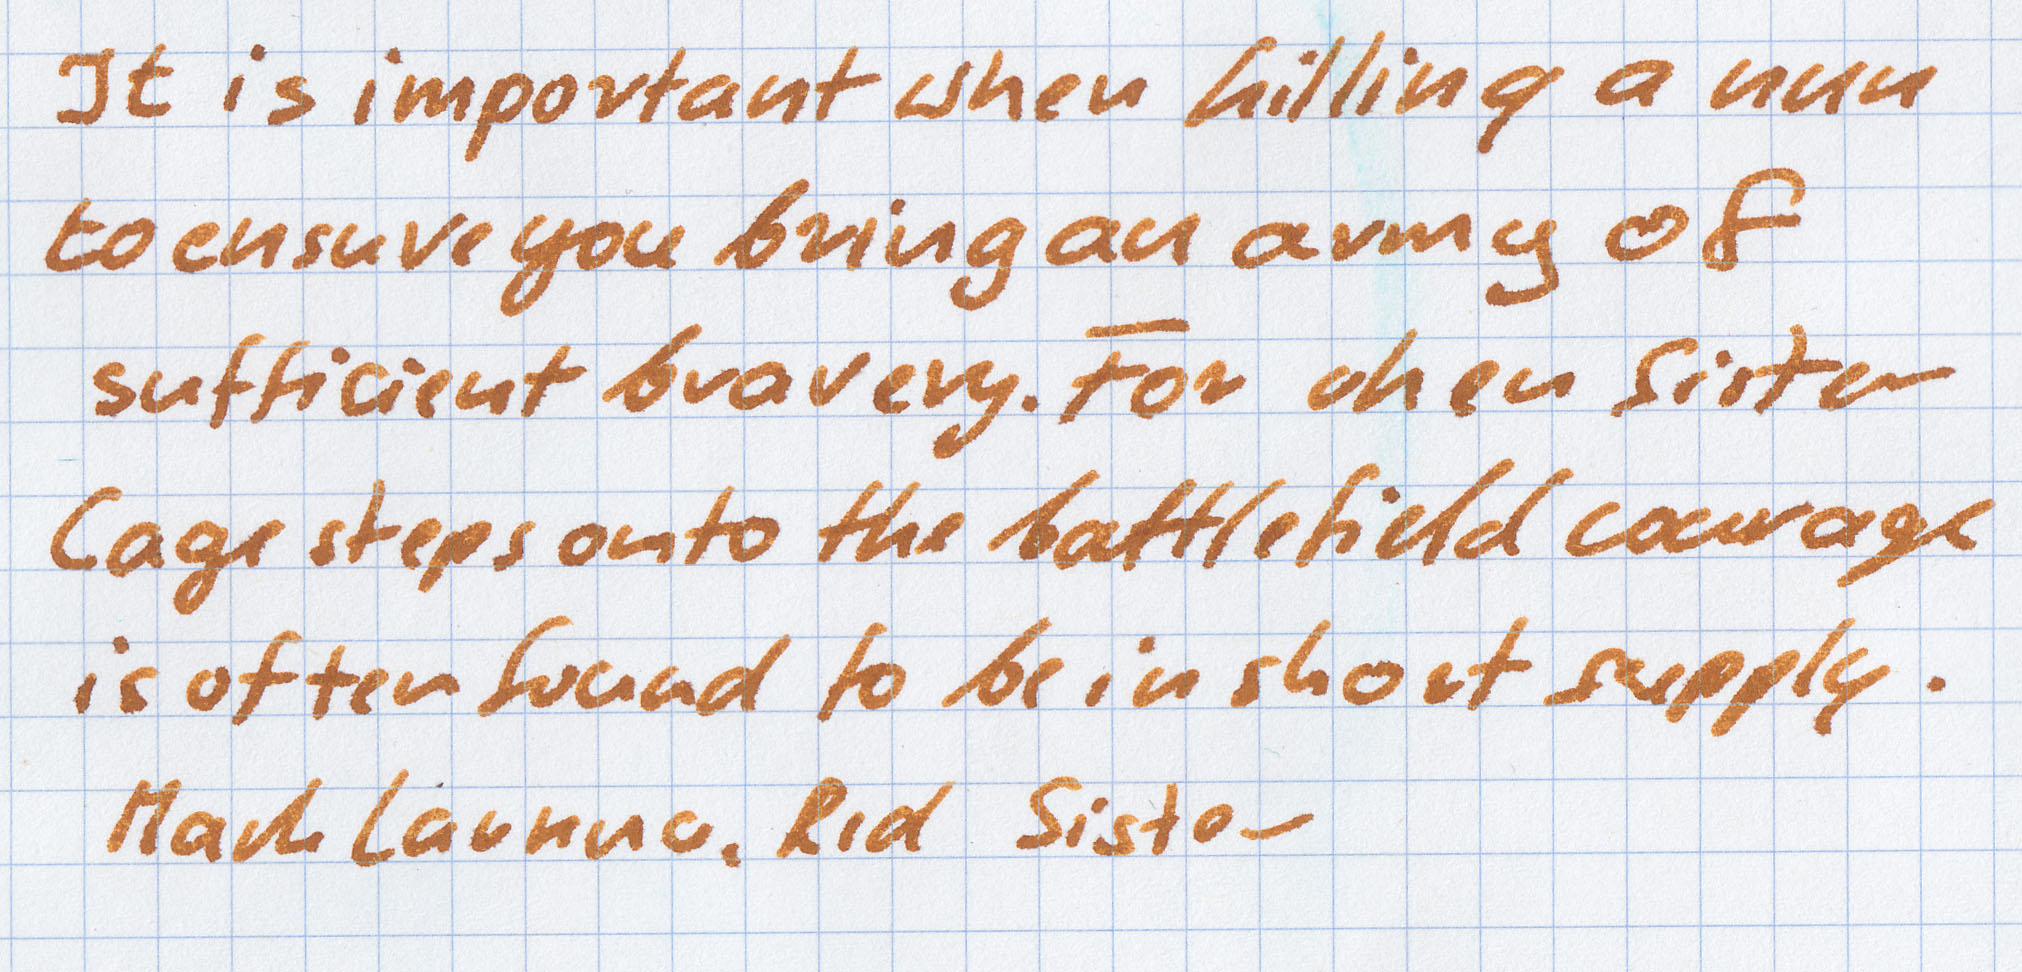 It is important when killing a nun
to ensure you bring an army of
sufficient bravery. For when Sister
Cage steps onto the battlefield courage
is often found to be in short supply.
Mark Lawrence. Red Sister